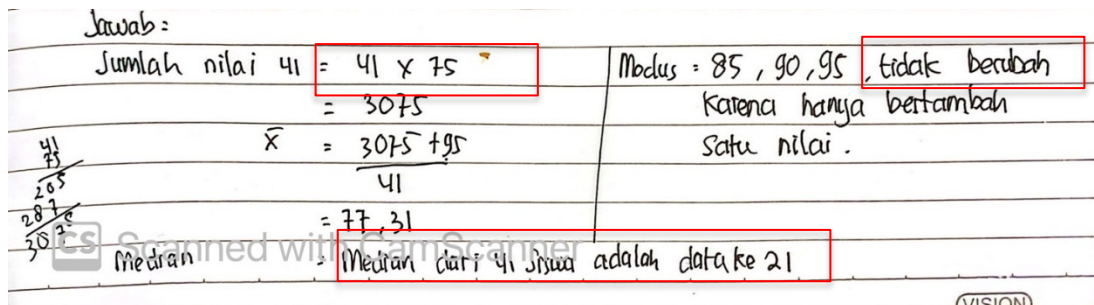 Jawab :
Jumlah nilai 41 = 41 x 75
= 3075
x̄ = 3075 + 95
41
= 77,31
Median = Median dari 41 siswa adalah data ke 21
Modus : 85, 90, 95, tidak berubah
karena hanya bertambah
satu nilai.
41
75
205
287
3075
CS Scanned with CamScanner
(VISION)